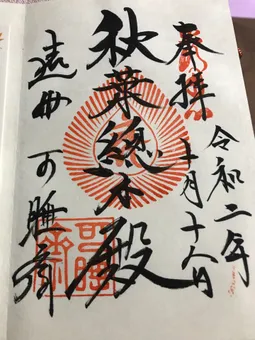 奉拝
令和二年
十一月十八日
秋葉總本殿
遠州 可睡齋